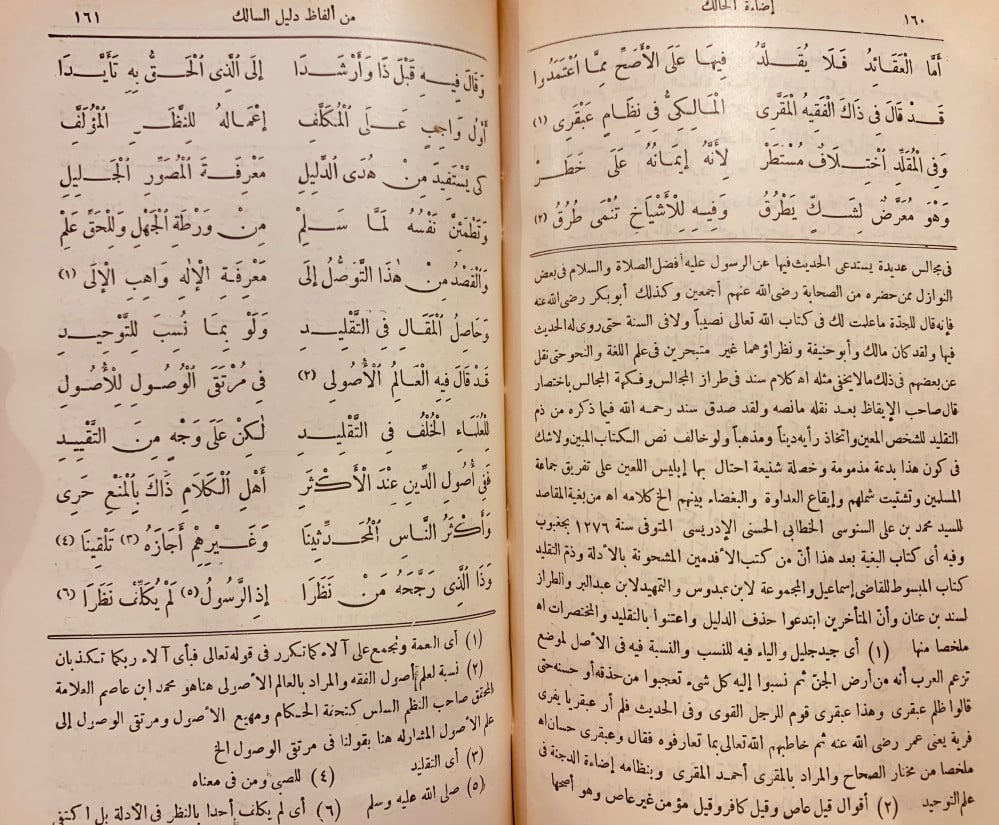 ١٦٠
إضاءة الحالك
أَمَّا الْعَقَائِدُ فَلَا يُقَلَّدُ فِيهَا عَلَى الْأَصَحِّ مِمَّا اعْتَمَدُوا
قَدْ قَالَ فِي ذَاكَ الْفَقِيهُ الْمَقَّرِي الْمَالِكِيُّ فِي نِظَامٍ عَبْقَرِي (١)
وَفِي الْمُقَلِّدِ اخْتِلَافٌ مُسْتَطَرْ لِأَنَّهُ إِيمَانُهُ عَلَى خَطَرْ
وَهْوَ مُعَرَّضٌ لِشَكٍّ يَطْرُقُ وَفِيهِ لِلْأَشْيَاخِ تُنْمَى طُرُقُ (٢)
فى مجالس عديدة يستدعى الحديث فيها عن الرسول عليه أفضل الصلاة والسلام فى بعض
النوازل ممن حضره من الصحابة رضى الله عنهم أجمعين وكذلك أبو بكر رضى الله عنه
فإنه قال للجدّة ما علمت لك فى كتاب الله تعالى نصيباً ولا فى السنة حتى روى له الحديث
فيها ولقد كان مالك وأبو حنيفة ونظراؤهما غير متبحرين فى علم اللغة والنحو حتى نقل
عن بعضهم فى ذلك ما لا يخفى مثله اه كلام سند فى طراز المجالس وفكهة المجالس باختصار
قال صاحب الإيقاظ بعد نقله مانصه ولقد صدق سند رحمه الله فيما ذكره من ذم
التقليد للشخص المعين واتخاذ رأيه ديناً ومذهباً ولو خالف نص الكتاب المبين ولاشك
فى كون هذا بدعة مذمومة وخصلة شنيعة احتال بها إبليس اللعين على تفريق جماعة
المسلمين وتشتيت شملهم وإيقاع العداوة والبغضاء بينهم الخ كلامه اه من بغية المقاصد
للسيد محمد بن على السنوسى الخطابى الحسنى الإدريسى المتوفى سنة ١٢٧٦ بجغبوب
وفيه أى كتاب البغية بعد هذا أنّ من كتب الأقدمين المشحونة بالأدلة وذمّ التقليد
كتاب المبسوط للقاضى إسماعيل والمجموعة لابن عبدوس والتمهيد لابن عبد البر والطراز
لسند بن عنان وأنّ المتأخرين ابتدعوا حذف الدليل واعتنوا بالتقليد والمختصرات اه
ملخصا منها (١) أى جيد جليل والياء فيه للنسب والنسبة فيه فى الأصل لموضع
تزعم العرب أنه من أرض الجنّ ثم نسبوا إليه كل شىء تعجبوا من حذقه أو حسنه حتى
قالوا ظلم عبقرى وهذا عبقرى قوم للرجل القوى وفى الحديث فلم أر عبقريا يفرى
فرية يعنى عمر رضى الله عنه ثم خاطبهم الله تعالى بما تعارفوه فقال وعبقرى حسان اه
ملخصا من مختار الصحاح والمراد بالمقرى أحمد المقرى وبنظامه إضاءة الدجنة فى
علم التوحيد (٢) أقوال قيل عاص وقيل كافر وقيل مؤمن غير عاص وهو أصحها
من ألفاظ دليل السالك
١٦١
وَقَالَ فِيهِ قَبْلَ ذَا وَأَرْشَدَا إِلَى الَّذِي الْحَقُّ بِهِ تَأَيَّدَا
أَوَّلُ وَاجِبٍ عَلَى الْمُكَلَّفِ إِعْمَالُهُ لِلنَّظَرِ الْمُؤَلَّفِ
كَيْ يَسْتَفِيدَ مِنْ هُدَى الدَّلِيلِ مَعْرِفَةَ الْمُصَوِّرِ الْجَلِيلِ
وَتَطْمَئِنَّ نَفْسُهُ لَمَّا سَلِمْ مِنْ وَرْطَةِ الْجَهْلِ وَلِلْحَقِّ عَلِمْ
وَالْقَصْدُ مِنْ هَٰذَا التَّوَصُّلُ إِلَى مَعْرِفَةِ الْإِلٰهِ وَاهِبِ الْإِلَى (١)
وَحَاصِلُ الْمَقَالِ فِي التَّقْلِيدِ وَلَوْ بِمَا نُسِبَ لِلتَّوْحِيدِ
قَدْ قَالَ فِيهِ الْعَالِمُ الْأُصُولِي (٢) فِي مُرْتَقَى الْوُصُولِ لِلْأُصُولِ
لِلْعُلَمَاءِ الْخُلْفُ فِي التَّقْلِيدِ لَٰكِنْ عَلَى وَجْهٍ مِنَ التَّقْيِيدِ
فَفِي أُصُولِ الدِّينِ عِنْدَ الْأَكْثَرِ أَهْلِ الْكَلَامِ ذَاكَ بِالْمَنْعِ حَرِي
وَأَكْثَرُ النَّاسِ الْمُحَدِّثِينَا وَغَيْرِهِمْ أَجَازَهُ (٣) تَلْقِينَا (٤)
وَذَا الَّذِي رَجَّحَهُ مَنْ نَظَرَا إِذِ الرَّسُولُ (٥) لَمْ يُكَلِّفْ نَظَرَا (٦)
(١) أى النعمة وتجمع على آلاء كما تكرر فى قوله تعالى فبأى آلاء ربكما تكذبان
(٢) نسبة لعلم أصول الفقه والمراد بالعالم الأصولى هنا هو محمد ابن عاصم العلامة
المحقق صاحب النظم السلس كتحفة الحكام ومهيع الأصول ومرتقى الوصول إلى
علم الأصول المشار له هنا بقولنا فى مرتقى الوصول الخ
(٣) أى التقليد (٤) للصبى ومن فى معناه
(٥) صلى الله عليه وسلم (٦) أى لم يكلف أحدا بالنظر فى الأدلة بل اكتفى